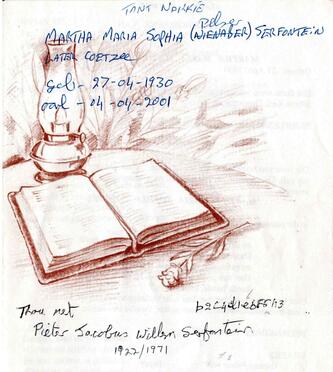 TANT NAKKIE
Pelser
MARTHA MARIA SOPHIA (NIENABER) SERFONTEIN
LATER COETZEE
geb - 27-04-1930
oorl - 04-04-2001
Thou met
Pieter Jacobus Willem Serfontein
1922/1971